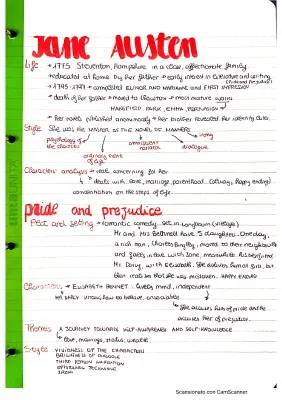 JANE AUSTEN
Life • 1775 Steventon, Hampshire in a close, affectionate family.
• educated at home by her father → early interest in literature and writing
• 1795-1797 • completed ELINOR AND MARIANNE and FIRST IMPRESSION
• death of her father • moved to → most mature works
MANSFIELD PARK, EMMA, PERSUASION
• her novels published anonymously → her brother revealed her identity
Style She was the MASTER OF THE NOVEL OF MANNERS
irony
psychology of the characters
omniscient narrator
dialogue
ordinary event of life
Character analysis → concerning for her
deals with love, marriage, parenthood (happy ending)
concentration on the steps of life.
pride and prejudice
Plot and setting → romantic comedy set in Longbourn (village)
Mr and Mrs Bennet have 5 daughters. One day,
a rich man, Charles Bingley, moved to their neighbourhood
and falls in love with Jane, meanwhile his best friend
Mr Darcy, with Elizabeth. She
HAPPY ENDING
Characters • ELIZABETH BENNET : lively mind, independent
MR DARCY
she accuses him of pride and he
accuses her of prejudice.
Themes A JOURNEY TOWARDS SELF-AWARENESS AND SELF-KNOWLEDGE
love, marriage, status, wealth.
Style
BRILLIANCE OF DIALOGUE
THIRD PERSON NARRATION
EPISTOLARY TECHNIQUE
IRONY
Scansionato con CamScanner